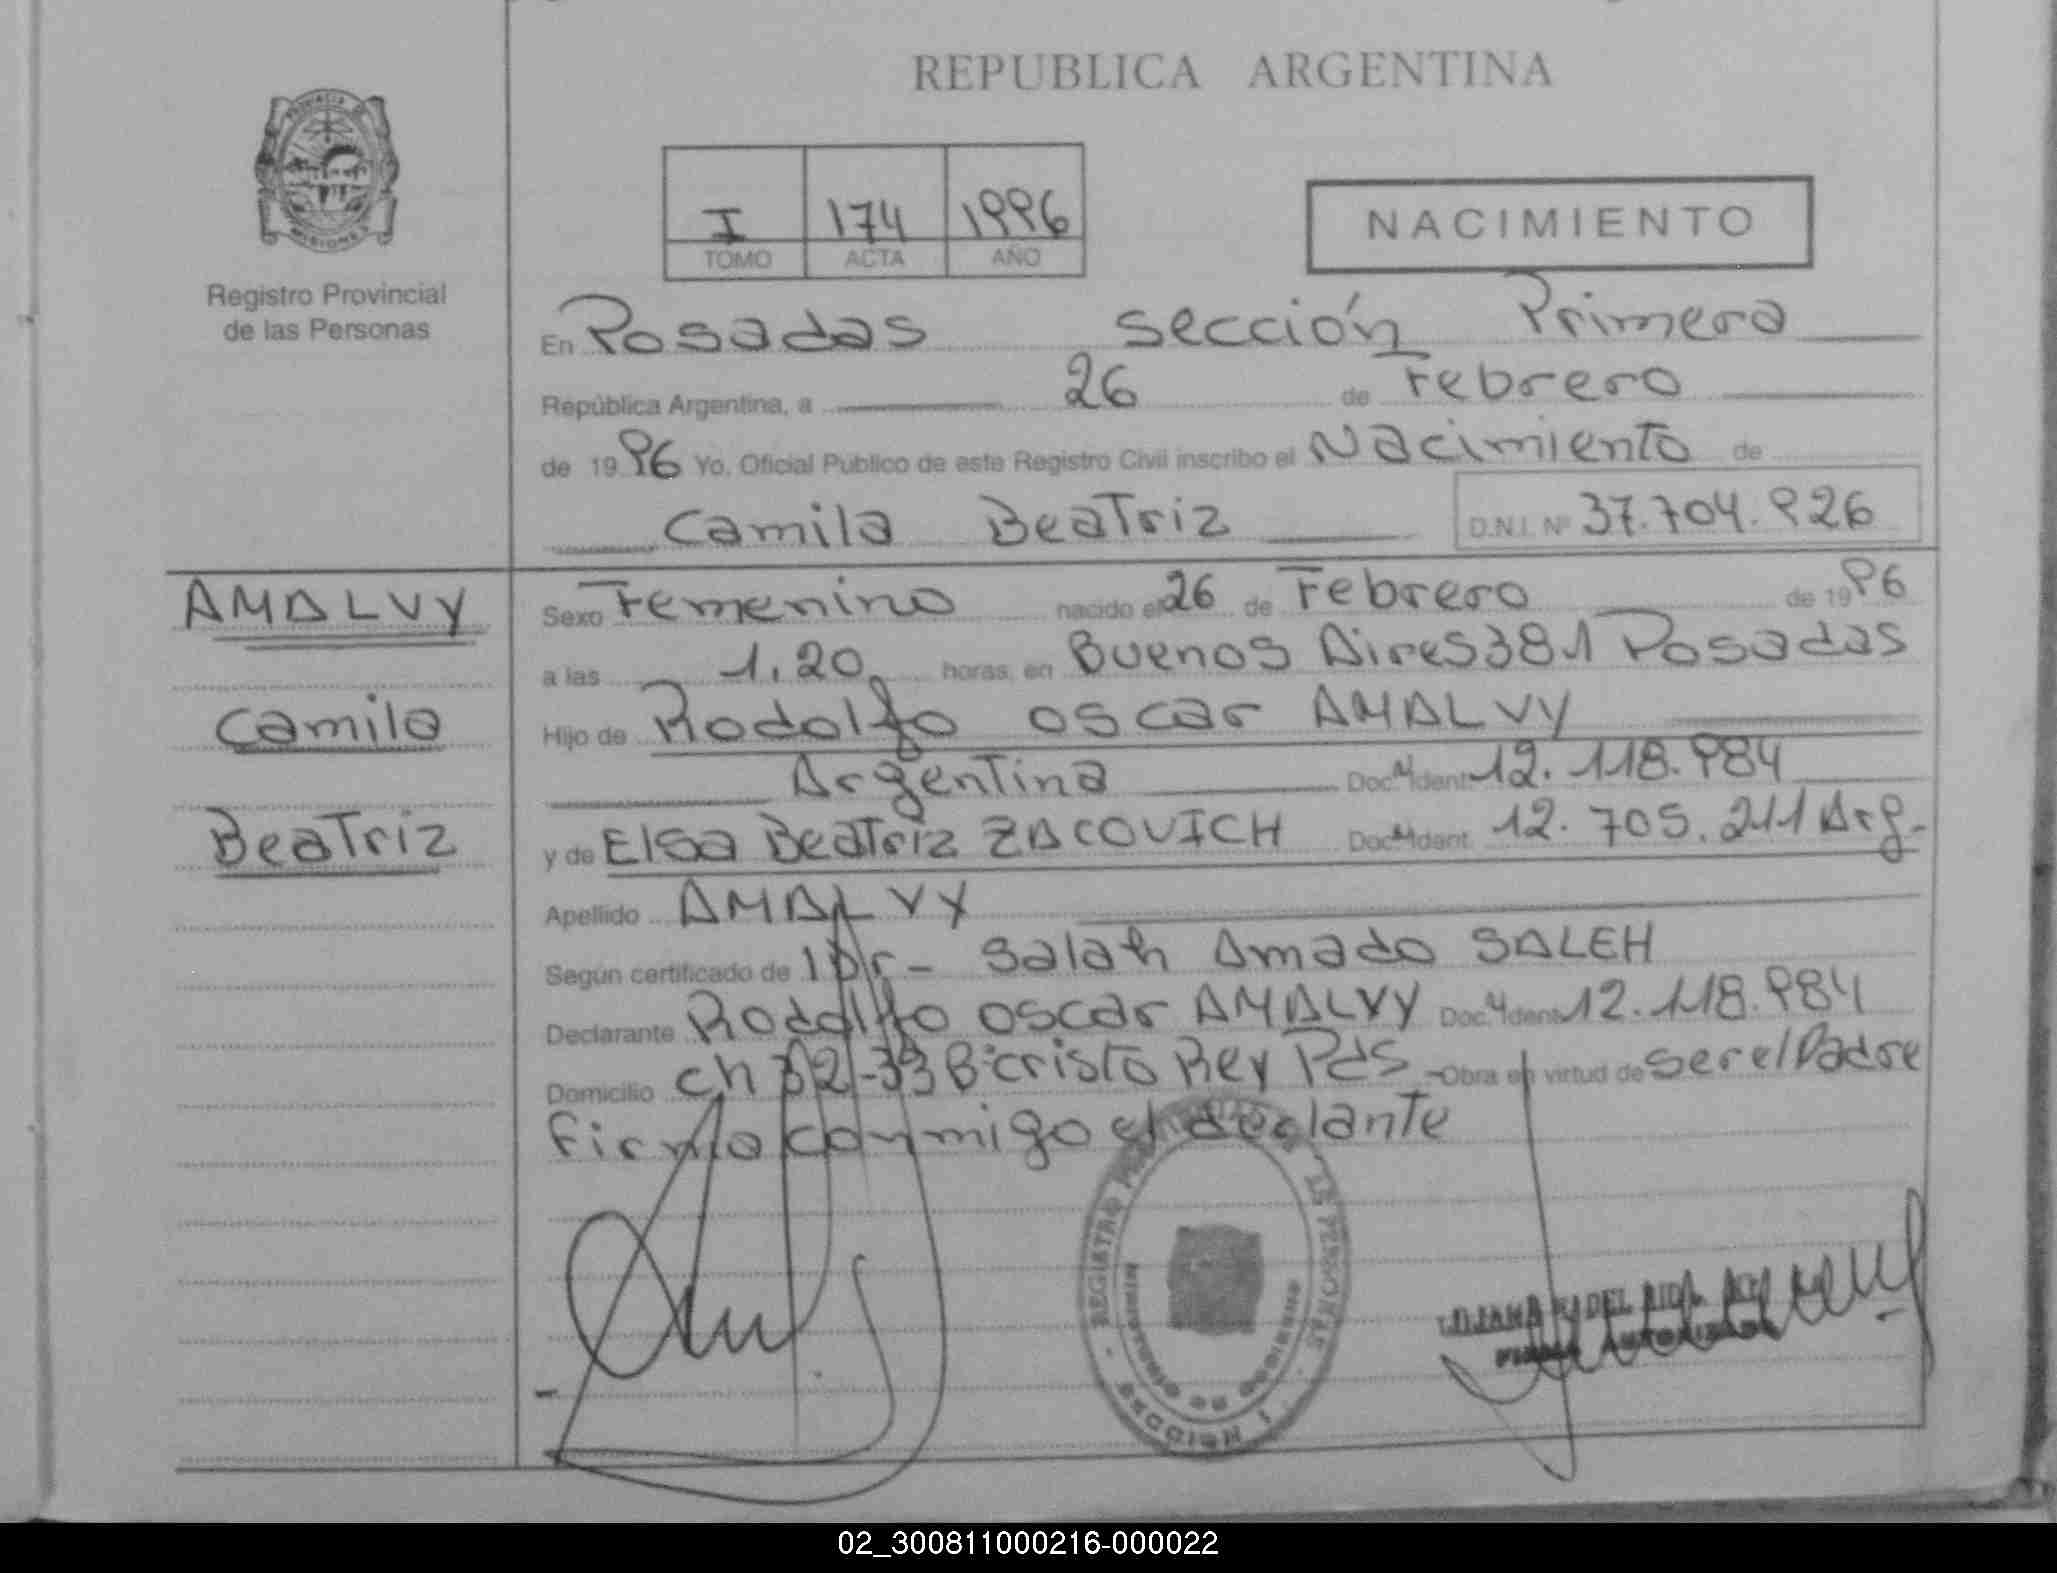 REPUBLICA ARGENTINA
PROVINCIA DE
MISIONES
Registro Provincial
de las Personas
I 174 1996
TOMO ACTA AÑO
NACIMIENTO
En Posadas sección Primera
República Argentina, a 26 de Febrero
de 19 96 Yo, Oficial Público de este Registro Civil inscribo el Nacimiento de
Camila Beatriz D.N.I. Nº 37.704.926
AMALVY
Camila
Beatriz
Sexo Femenino nacido el 26 de Febrero de 19 96
a las 1.20 horas, en Buenos Aires 381 Posadas
Hijo de Rodolfo oscar AMALVY
Argentina Doc. Ident. 12.118.984
y de Elsa Beatriz ZACOVICH Doc. Ident. 12.705.211 Arg.
Apellido AMALVY
Según certificado de Dr- Salah Amado SALEH
Declarante Rodolfo oscar AMALVY Doc. Ident. 12.118.984
Domicilio ch 32-33 Bº cristo Rey Pdas - Obra en virtud de ser el Padre
Firma conmigo el declante
REGISTRO DE LAS PERSONAS
MINISTERIO DE GOBIERNO
MISIONES
FIRMA AUTORIZADA
02_300811000216-000022